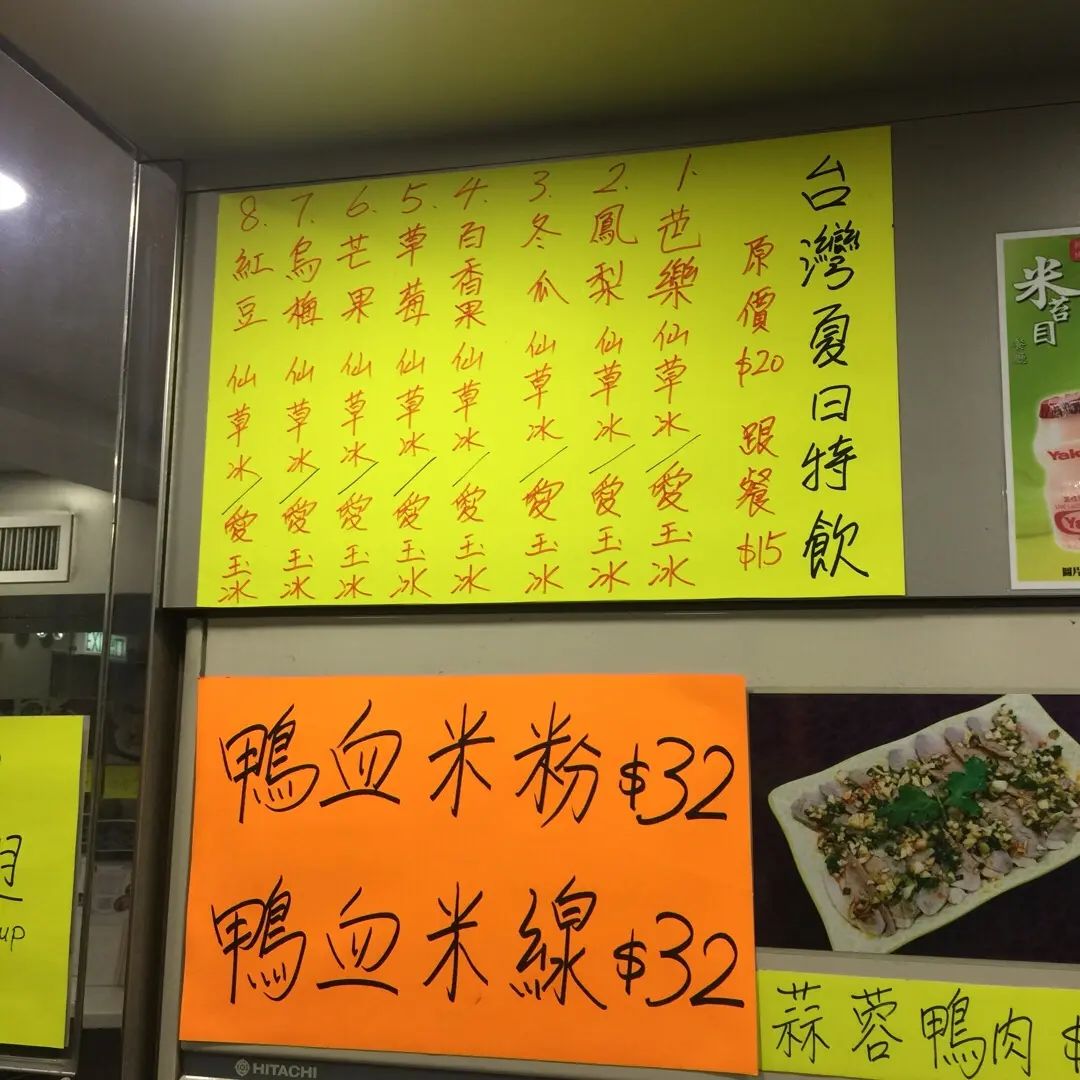 台灣夏日特飲
原價 $20 跟餐 $15
1. 芭樂 仙草冰/愛玉冰
2. 鳳梨 仙草冰/愛玉冰
3. 冬瓜 仙草冰/愛玉冰
4. 百香果 仙草冰/愛玉冰
5. 草莓 仙草冰/愛玉冰
6. 芒果 仙草冰/愛玉冰
7. 烏梅 仙草冰/愛玉冰
8. 紅豆 仙草冰/愛玉冰
鴨血米粉 $32
鴨血米線 $32
蒜蓉鴨肉 $
米苔目
圖片
HITACHI
EXIT
up